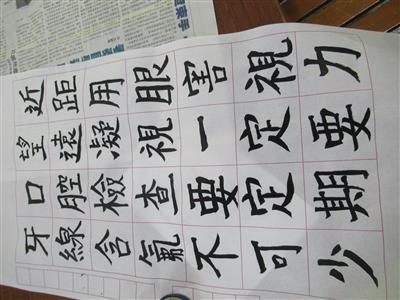 近距用眼害視力
望遠凝視一定要
口腔檢查要定期
牙線含氟不可少